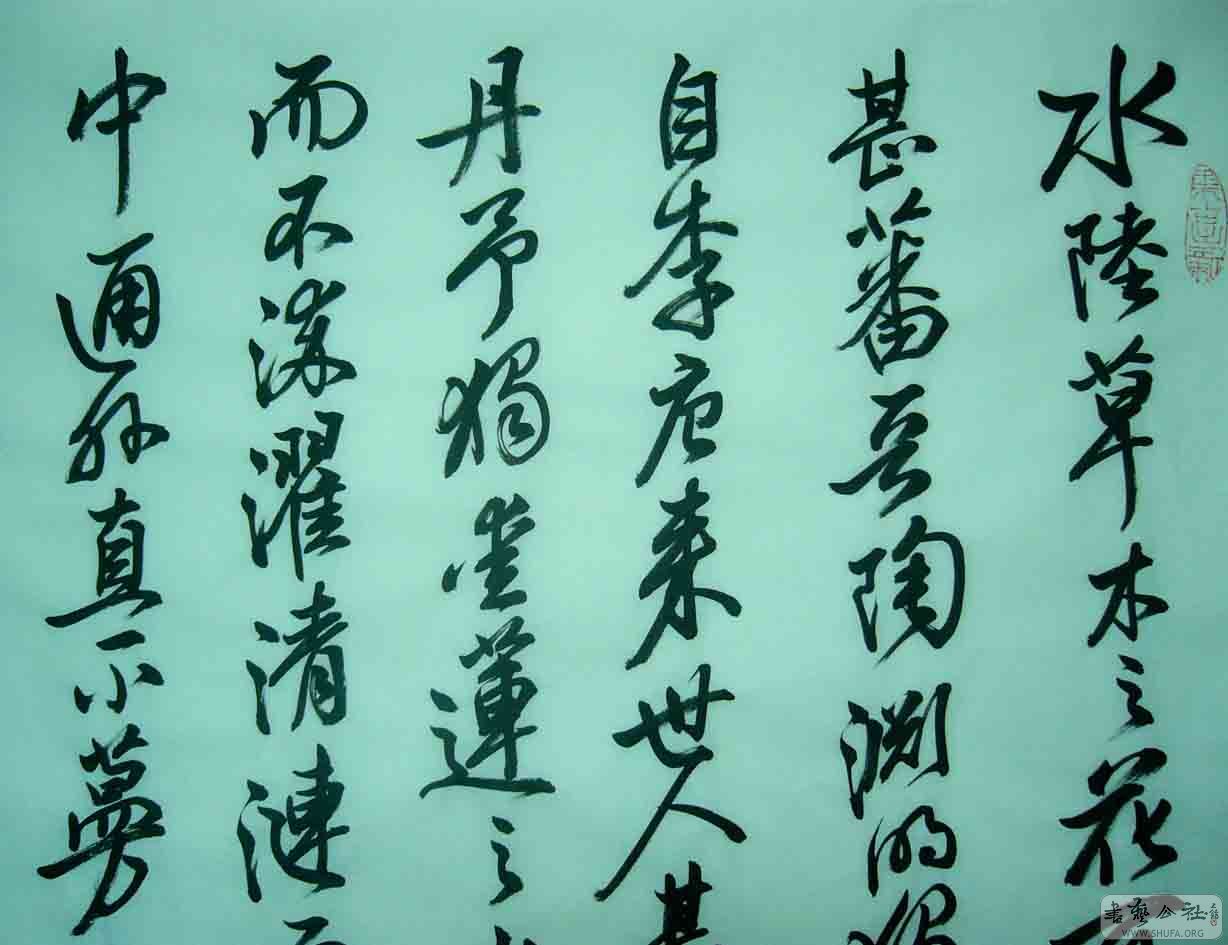 水陸草木之花
甚蕃晋陶渊明獨
自李唐来世人甚
丹予獨爱蓮之
而不染濯清漣而
中通外直不蔓
書藝公社
WWW.SHUFA.ORG